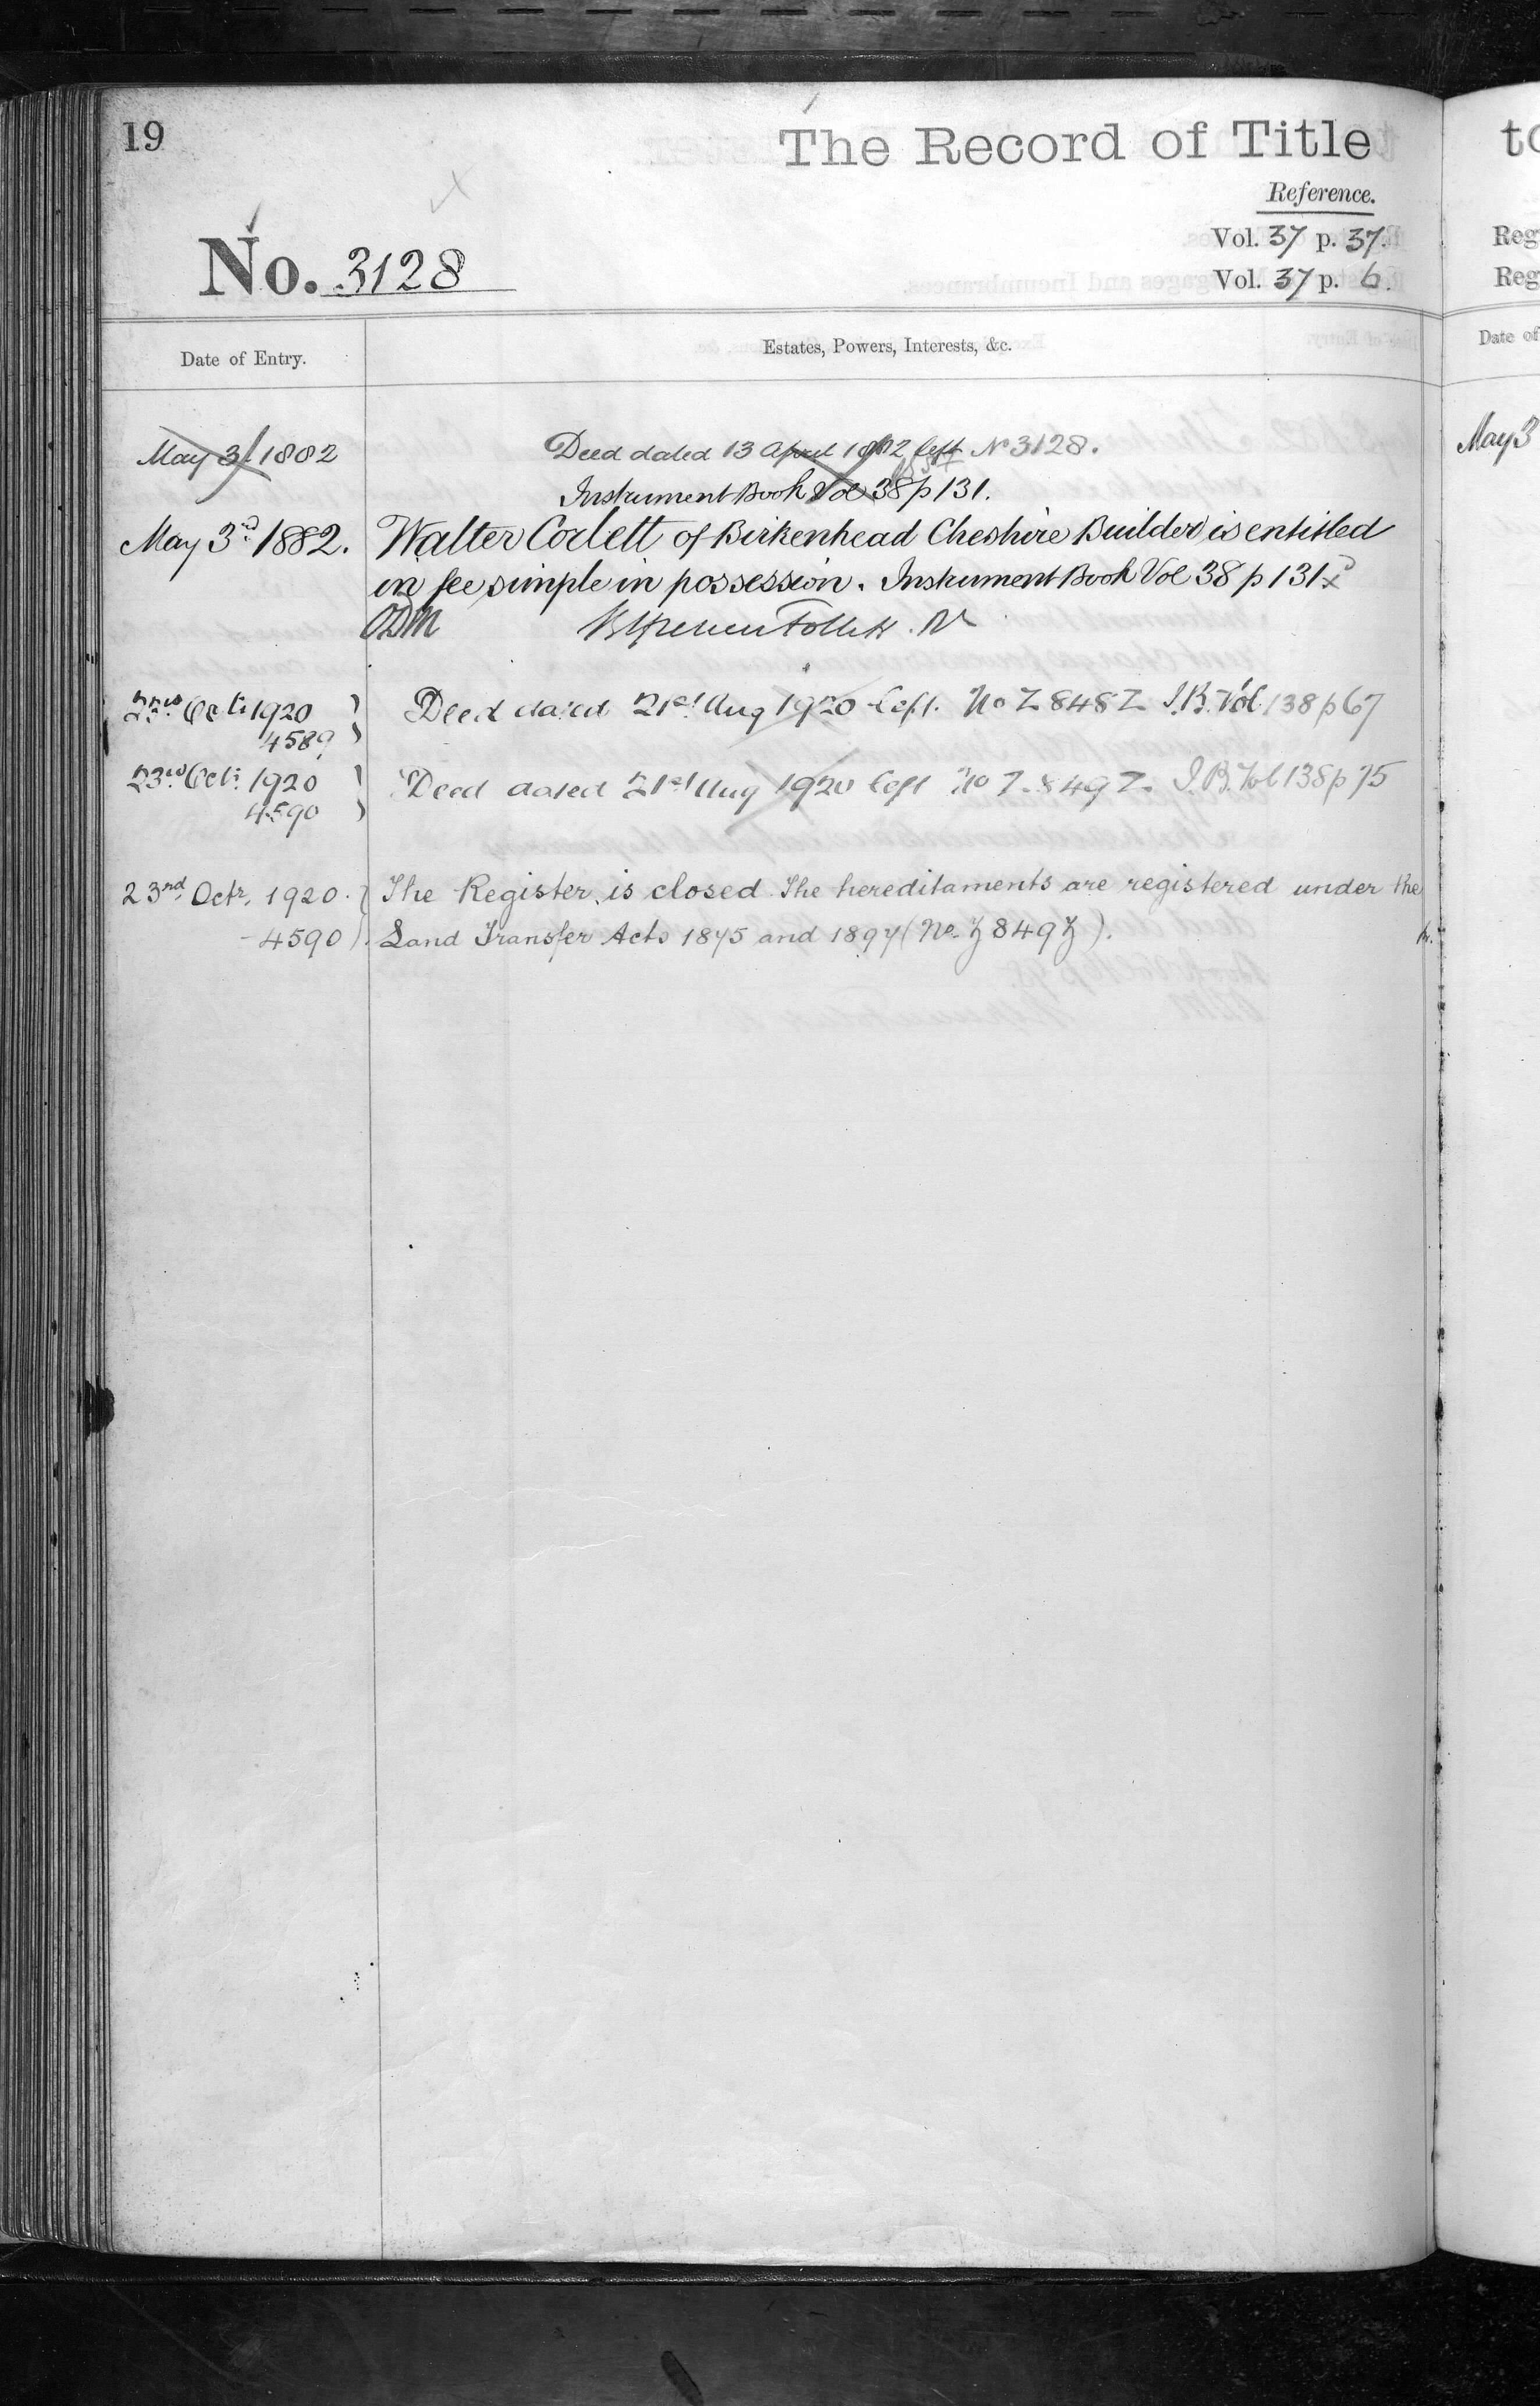 19
The Record of Title
Reference.
Vol. 37 p. 37.
Vol. 37 p. 6.
No. 3128
Date of Entry.
Estates, Powers, Interests, &c.
May 3/1882
Deed dated 13 April 1882 left No 3128.
Instrument Book Vol 38 p 131.
May 3rd 1882.
Walter Corlett of Birkenhead Cheshire Builder is entitled
in fee simple in possession. Instrument Book Vol 38 p 131
ODM
23rd Oct: 1920
4589
Deed dated 21st Aug 1920 left. No Z 848 Z I.B. Vol. 138 p 67
23rd Oct: 1920
4590
Deed dated 21st Aug 1920 left No Z 849 Z. I.B. Vol 138 p 75
23rd Octr. 1920.
4590
The Register is closed. The hereditaments are registered under the
Land Transfer Acts 1875 and 1897 (No. Z 849 Z).
to
Reg
Reg
Date of
May 3